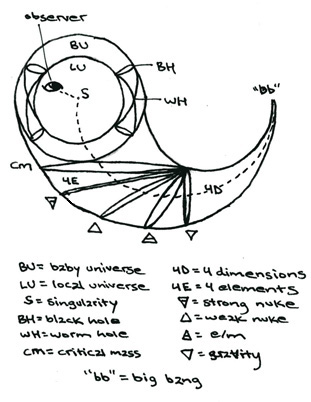 observer
BU
LU
BH
S
WH
"bb"
CM
4E
4D
BU = baby universe
LU = local universe
S = singularity
BH = black hole
WH = worm hole
CM = critical mass
4D = 4 dimensions
4E = 4 elements
= strong nuke
= weak nuke
= e/m
= gravity
"bb" = big bang